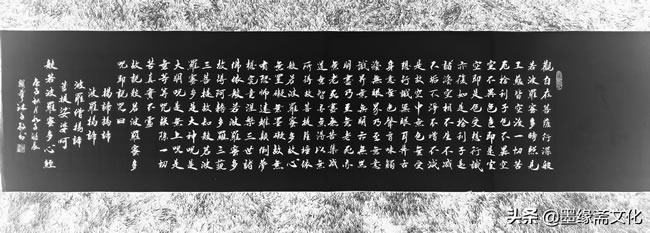 觀自在菩薩行深般
若波羅蜜多時照見
五蘊皆空度一切苦
厄舍利子色不異空
空不異色色即是空
空即是色受想行識
亦復如是舍利子是
諸法空相不生不滅
不垢不淨不增不減
是故空中無色無受
想行識無眼耳鼻舌
身意無色聲香味觸
法無眼界乃至無意
識界無無明亦無無
明盡乃至無老死亦
無老死盡無苦集滅
道無智亦無得以無
所得故菩提薩埵依
般若波羅蜜多故心
無罣礙無罣礙故無
有恐怖遠離顛倒夢
想究竟涅槃三世諸
佛依般若波羅蜜多
故得阿耨多羅三藐
三菩提故知般若波
羅蜜多是大神咒是
大明咒是無上咒是
無等等咒能除一切
苦真實不虛
故說般若波羅蜜多
咒即說咒曰
揭諦揭諦
波羅揭諦
波羅僧揭諦
菩提娑婆訶
般若波羅蜜多心經
头条 @墨缘斋文化